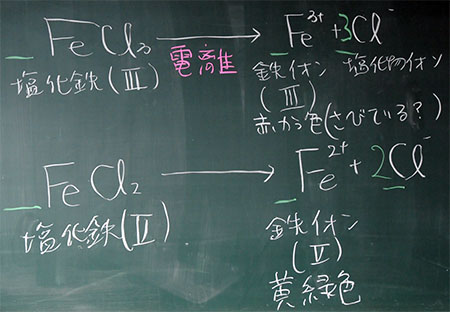 FeCl₃ 電離 → Fe³⁺ + 3Cl⁻
塩化鉄(Ⅲ) 鉄イオン 塩化物イオン
(Ⅲ)
赤かっ色(さびている?)
FeCl₂ → Fe²⁺ + 2Cl⁻
塩化鉄(Ⅱ) 鉄イオン
(Ⅱ)
黄緑色